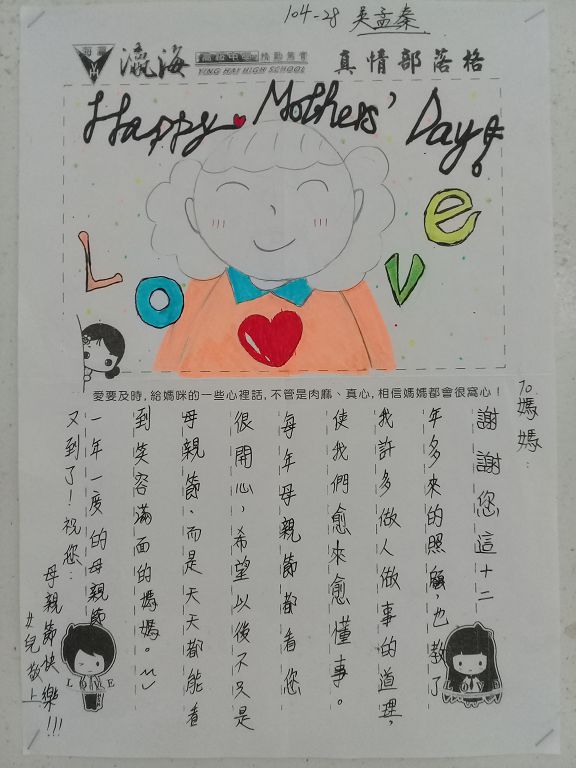 104-28 吳孟秦
瀛海 高級中學 精勤篤實
YING HAI HIGH SCHOOL
真情部落格
Happy Mothers' Day!
LOVe
愛要及時,給媽咪的一些心裡話,不管是肉麻、真心,相信媽媽都會很窩心!
To 媽媽:
謝謝您這十二
年多來的照顧,也教了
我許多做人做事的道理,
使我們愈來愈懂事。
每年母親節都看您
很開心,希望以後不只是
母親節、而是天天都能看
到笑容滿面的媽媽。
一年一度的母親節
又到了!祝您:
母親節快樂!!!
女兒敬上
LOVE
LOVE